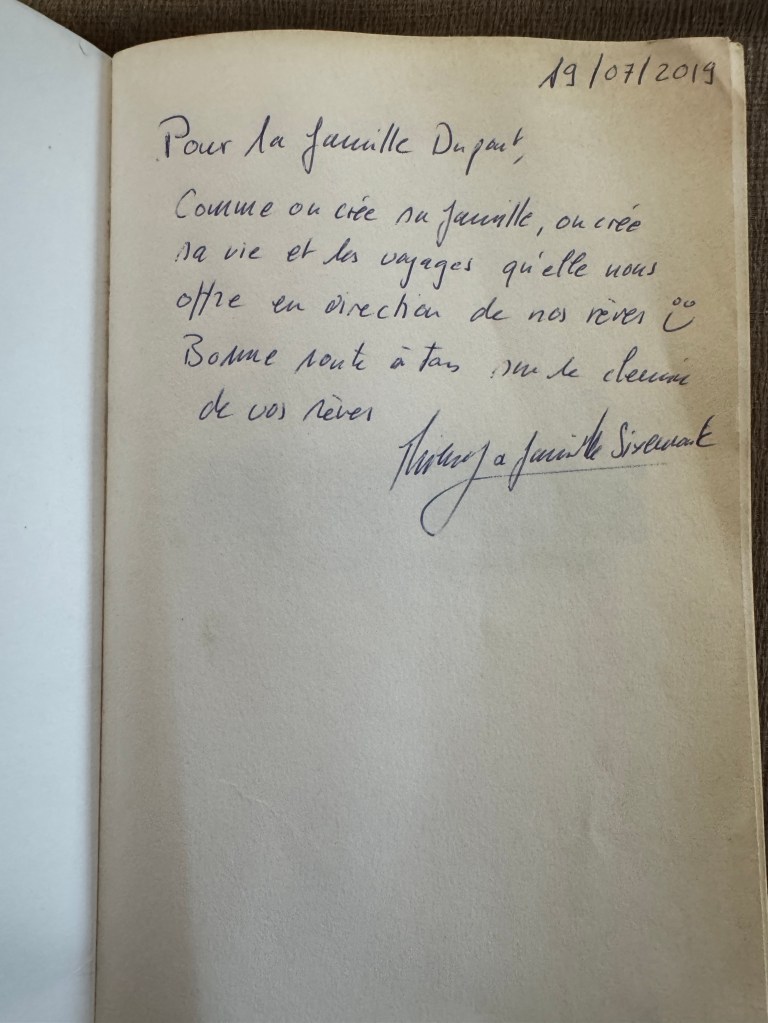 19/07/2019
Pour la famille Dupont,
Comme on crée sa famille, on crée
sa vie et les voyages qu'elle nous
offre en direction de nos rêves
Bonne route à tous sur le chemin
de vos rêves
famille